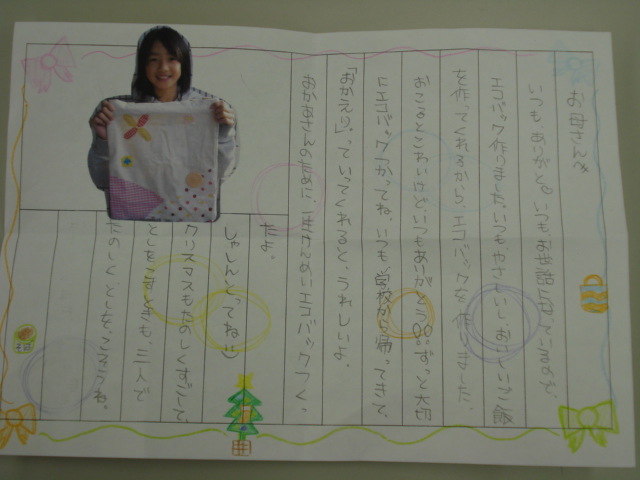 お母さんへ
いつもありがと。いつもお世話になっているので、
エコバック作りました。いつもやさしいし、おいしいご飯
を作ってくれるから、エコバックを作りました。
おこるとこわいけど、いつもありがとう!!ずっと大切
にエコバックつかってね。いつも学校から帰ってきて、
「おかえり」って、いってくれると、うれしいよ。
おかあさんのために、一生けんめいエコバックつくっ
たよ。
しゃしんとってね!!
クリスマスもたのしくすごして、
としをこすときも、三人で
たのしくとしを、こそうね。